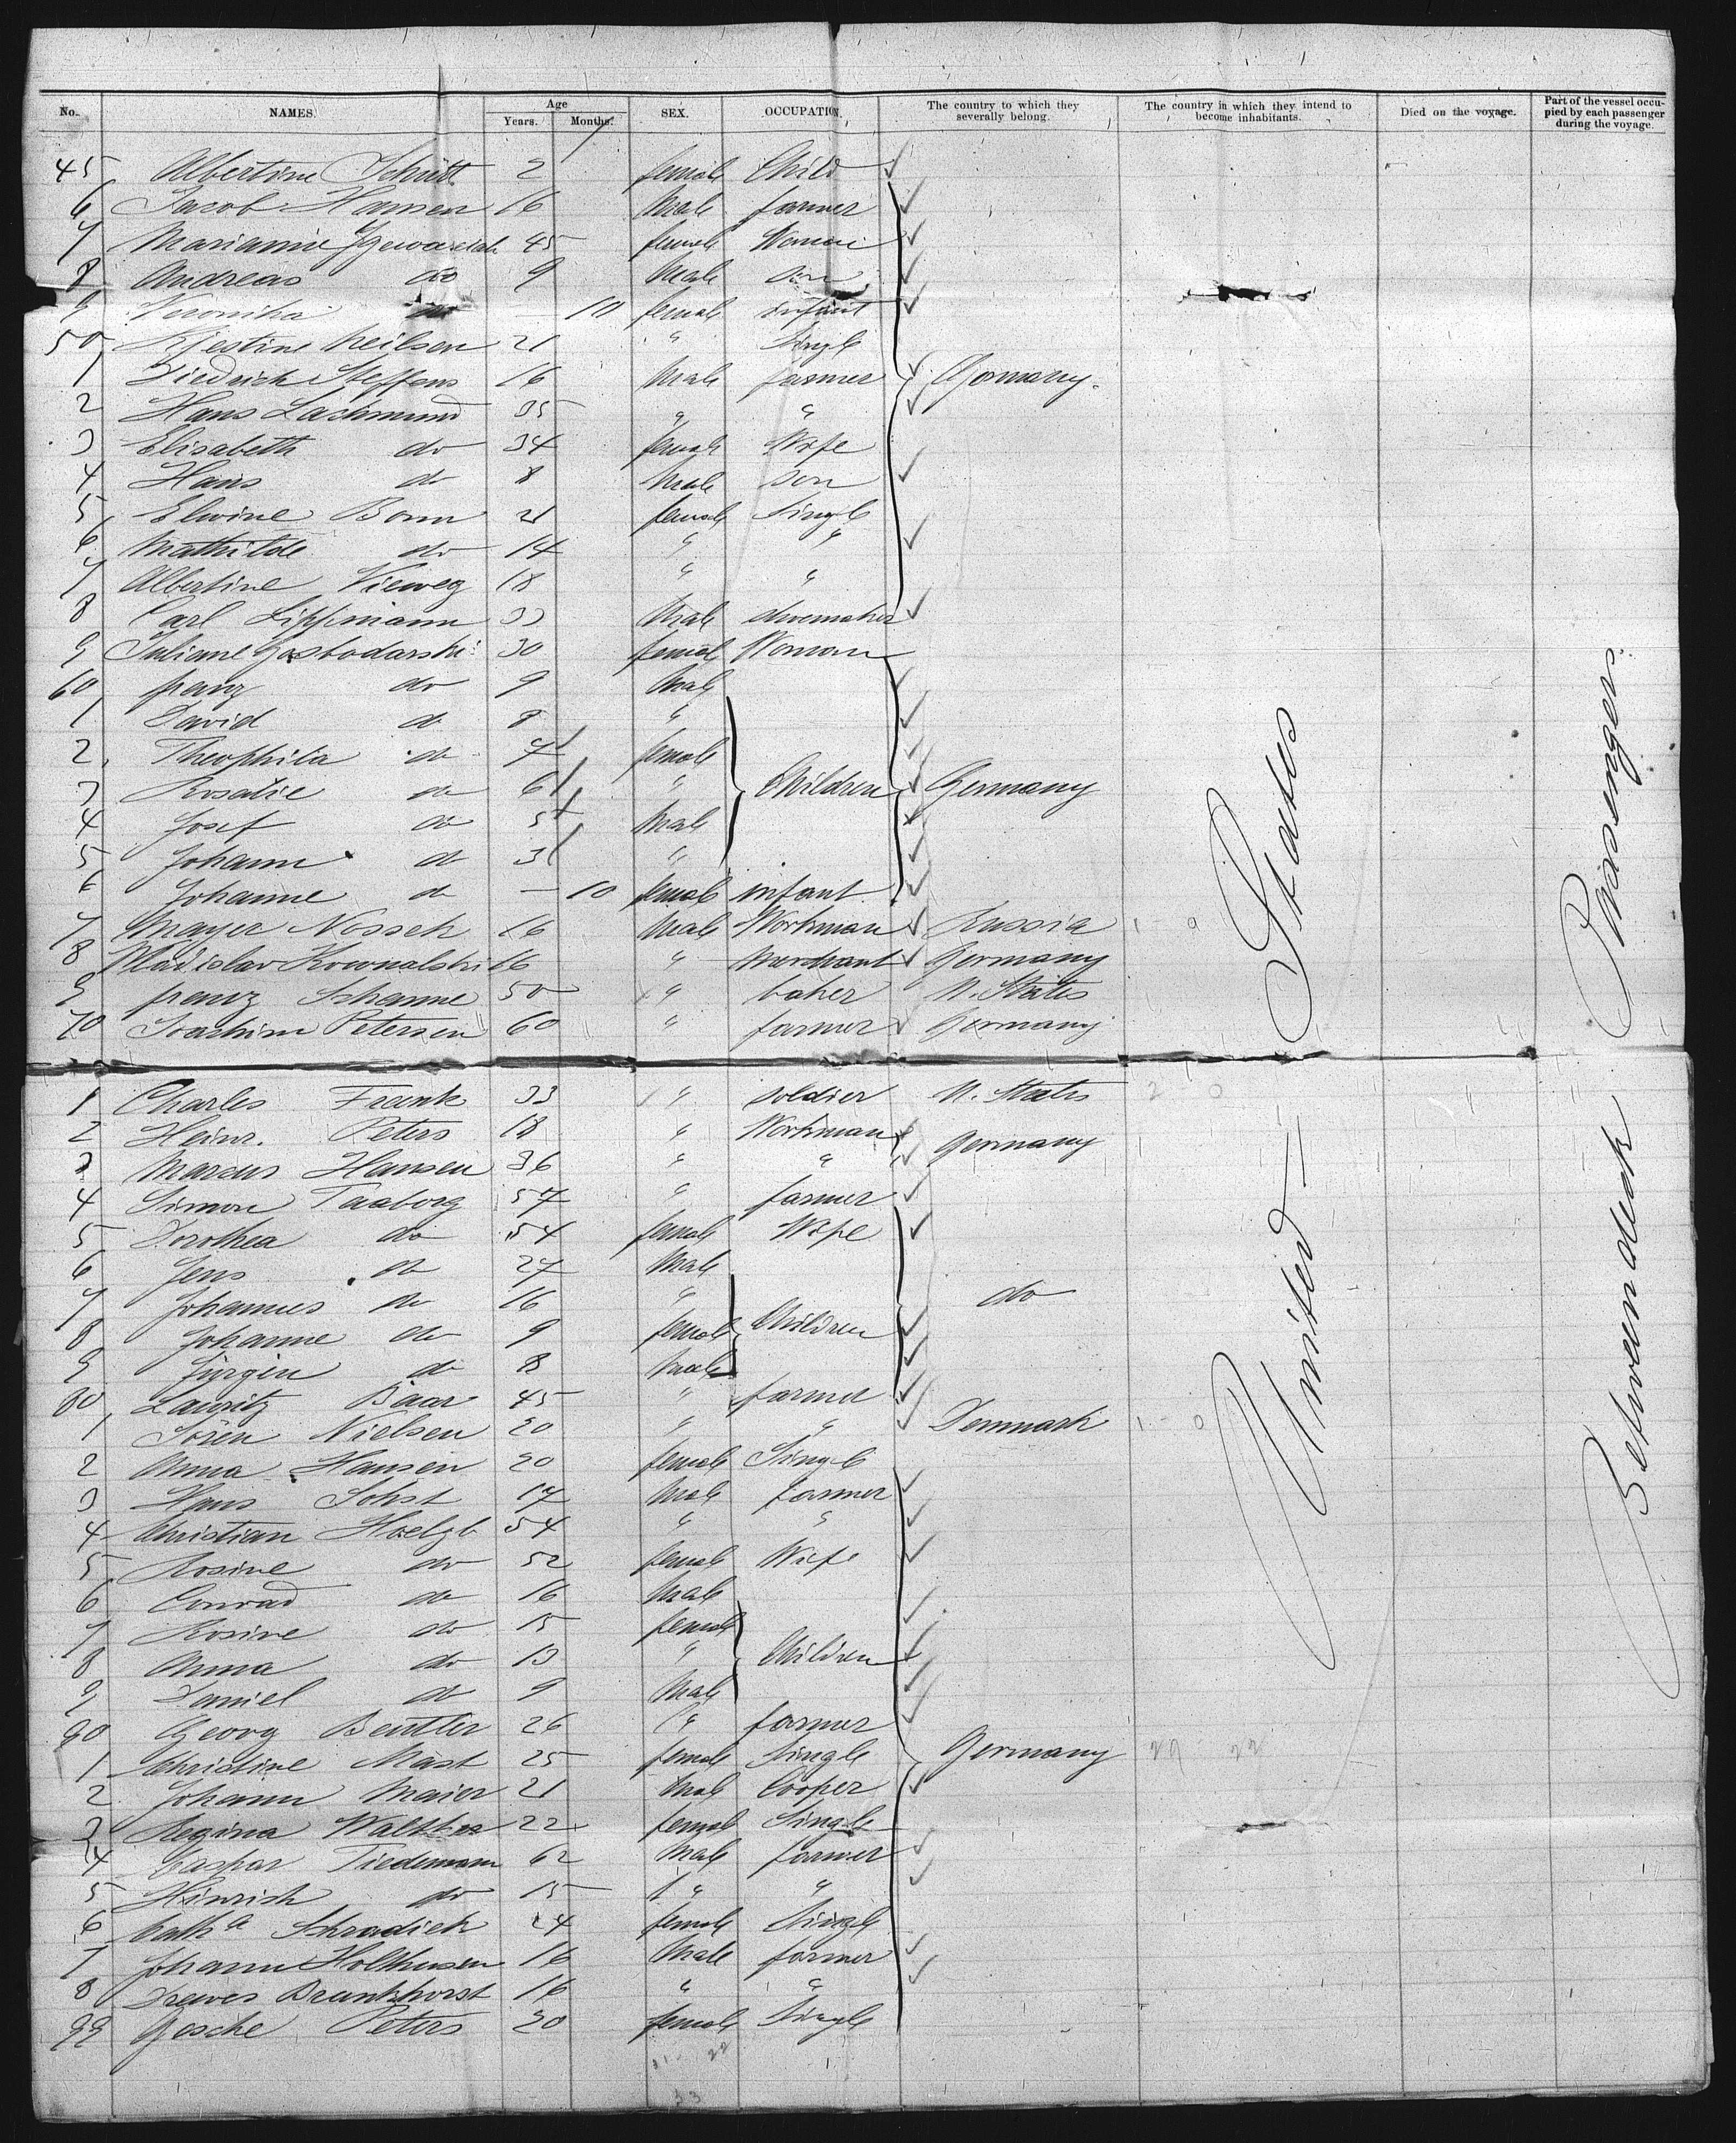 No. NAMES. Age Years. Months. SEX. OCCUPATION. The country to which they severally belong. The country in which they intend to become inhabitants. Died on the voyage. Part of the vessel occupied by each passenger during the voyage.
45 Albertine Schütt 2 female Child
6 Jacob Hansen 16 Male farmer
7 Marianne 45 female Woman
8 Andreas do 9 Male son
9 Veronika do — 10 female infant
50 Kjestine Neilsen 21 " Single
1 Diedrich Steffens 16 Male farmer Germany.
2 Hans Lachmund 35 " "
3 Elisabeth do 34 female Wife
4 Hans do 8 Male son
5 Elwine Born 21 female Single
6 Mathilde do 14 " "
7 Albertine Vieweg 18 " "
8 Carl Lippmann 33 Male shoemaker
9 Juliane Gosbodarski 30 female Woman
60 franz do 9 Male
1 David do 8 "
2 Theophila do 7 female
3 Rosalie do 6 " Children Germany
4 Josef do 5 Male
5 Johann do 3 "
6 Johanne do — 10 female infant
7 Mayer Nossek 16 Male Workman Russia
8 Wladislav Kownalski 16 " Merchant Germany
9 franz Schanne 50 " baker U. States
70 Joachim Petersen 60 " farmer Germany
1 Charles Frank 33 " soldier U. States
2 Heinr. Peters 18 " Workman Germany
3 Marcus Hansen 36 " "
4 Simon Taaborg 57 " farmer
5 Dorothea do 54 female Wife
6 Jens do 27 Male
7 Johannes do 16 " Children do
8 Johanne do 9 female
9 Jürgen do 8 Male
80 Lauritz Baar 45 " farmer
1 Sören Nielsen 20 " " Denmark
2 Anna Hansen 20 female Single
3 Hans Sohst 17 Male farmer
4 Christian Hoelzle 54 " "
5 Rosine do 52 female Wife
6 Conrad do 16 Male
7 Rosine do 15 female
8 Anna do 13 " Children
9 Daniel do 9 Male
90 Georg Beutler 26 " farmer
1 Christine Mast 25 female Single Germany
2 Johann Maier 21 Male Cooper
3 Regina Walther 22 female Single
4 Caspar Tiedemann 62 Male farmer
5 Hinrich do 15 " "
6 Cath<sup>a</sup> Schradiek 24 female Single
7 Johann Holthusen 16 Male farmer
8 Drewes Brunkhorst 16 " "
99 Gesche Peters 20 female Single
United States
Between deck Passengers.